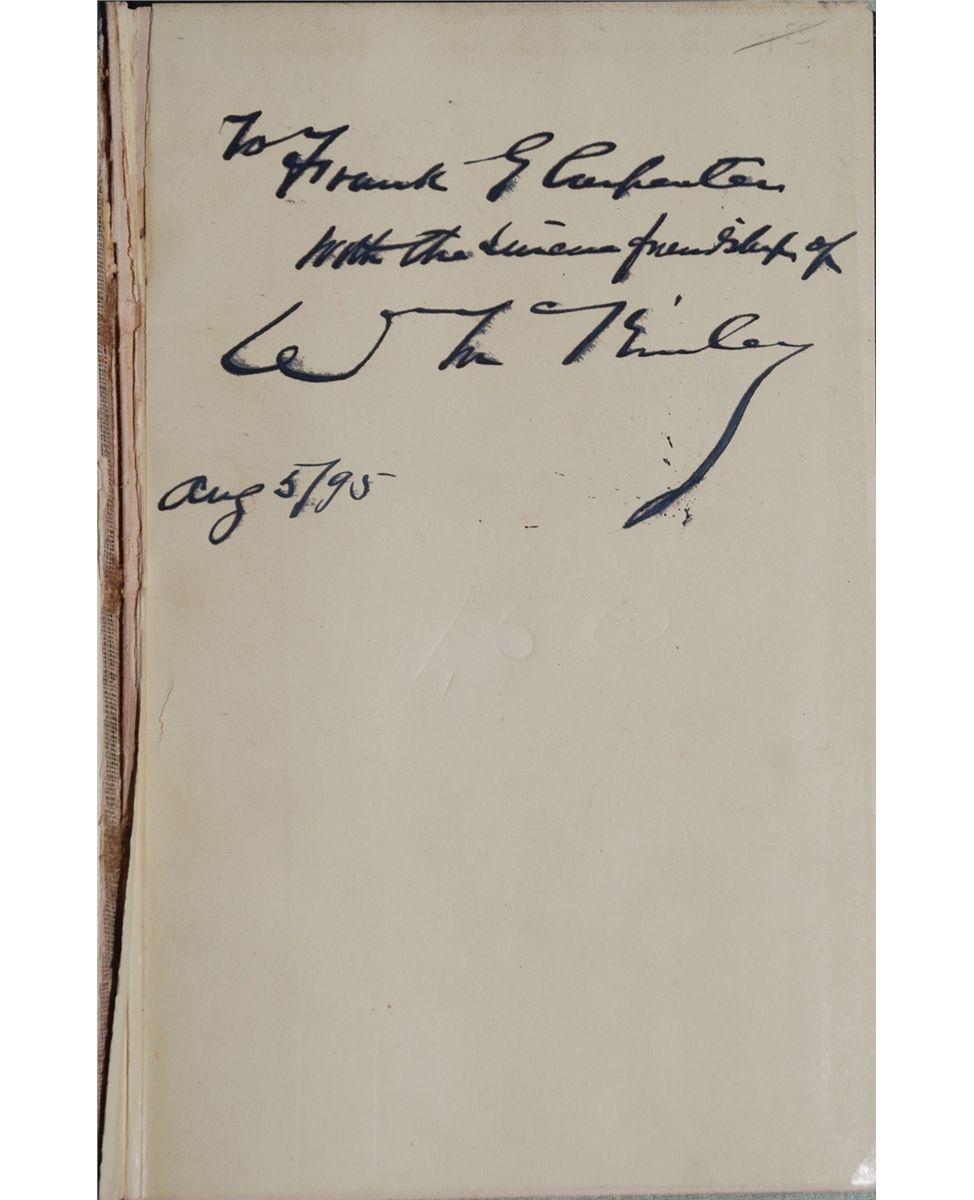 To
Frank G Carpenter
With the sincere friendship of
Wm McKinley
Aug 5/95